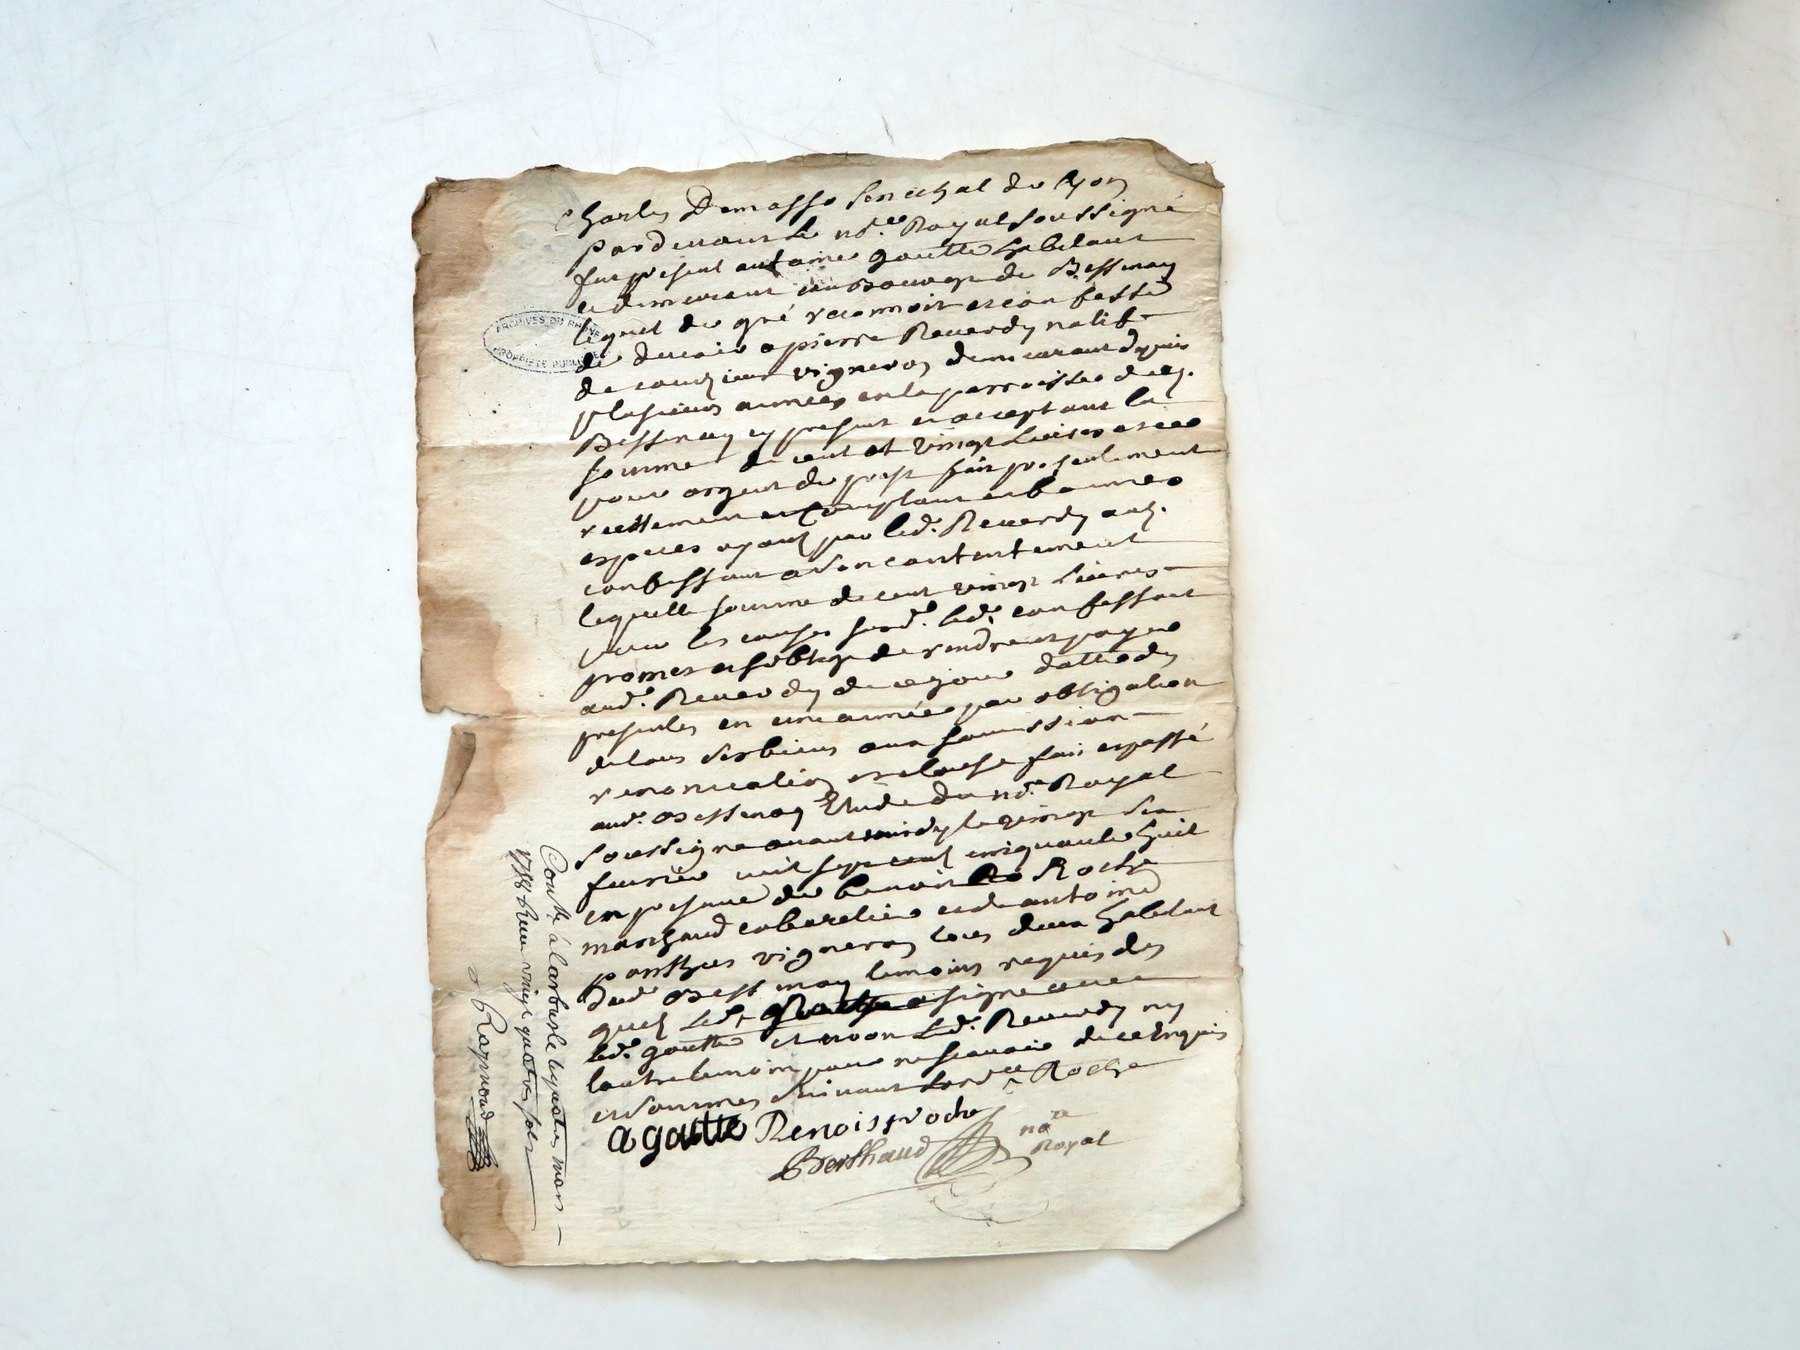 Charles Demasso senechal de lyon
pardevant le no.re Royal soussigné
fut present antoine goutte habitant
et demeurant au Bourg de Bessenay
lequel de gré reconnoit et confesse
de devoir a pierre Reverdy natif
de vigneron demeurant depuis
plusieurs années en la parroisse dud.
Bessenay cy present et acceptant la
somme de cent et vingt Livres et ce
pour argent de prest fait presentement
reellement et Comptant en bonnes
especes ayant par led. Reverdy aud.
confessant a son contentement
lequelle somme de cent vingt Livres
pour les causes susd. led. confessant
promet et s'oblige de rendre et payer
aud. Reverdy de ce jour datte des
presentes en une année par obligation
de tous ses biens aux soumission
renonciation et clause fait et passé
aud. Bessenay Etude du no.re Royal
soussigné avant midy le vingt six
fevrier mil sept cent cinquante huit
en presence de benoit Roche
marchand cabaretier et de antoine
vigneron tous deux habitant
dud. Bessenay temoins requis des
quels led. a signé avec
led. goutte et non led. Reverdy ny
l'autre temoin pour ne scavoir de ce Enquis
et sommes suivant Lord.ce Roche
a goutte Benoist roche
Berthaud no.re
Royal
Con.lé a Larbresle le quatre mars
1758 Receu vingt quatre sols
Raymond
ARCHIVES DU RHÔNE
PROPRIÉTÉ PUBLIQUE